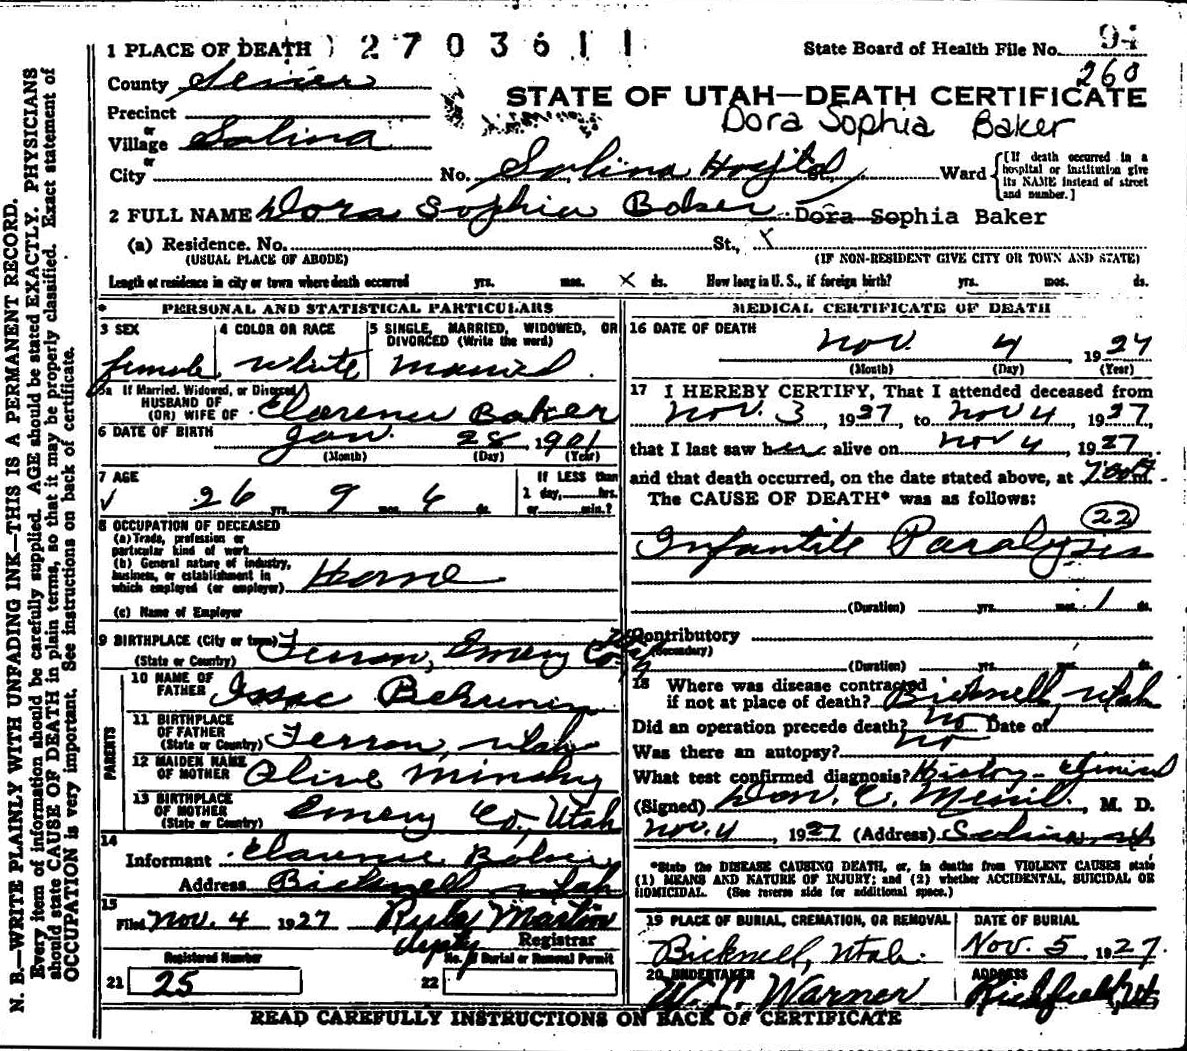 1 PLACE OF DEATH 2 7 0 3 6 1 1
State Board of Health File No. 94
260
County Sevier
STATE OF UTAH—DEATH CERTIFICATE
Precinct
Dora Sophia Baker
or
Village Salina
or
City No. Salina Hospital St., Ward
[If death occurred in a hospital or institution give its NAME instead of street and number.]
2 FULL NAME Dora Sophia Baker Dora Sophia Baker
(a) Residence. No. St., X
(USUAL PLACE OF ABODE) (IF NON-RESIDENT GIVE CITY OR TOWN AND STATE)
Length of residence in city or town where death occurred yrs. mos. X ds. How long in U. S., if foreign birth? yrs. mos. ds.
PERSONAL AND STATISTICAL PARTICULARS
3 SEX 4 COLOR OR RACE 5 SINGLE, MARRIED, WIDOWED, OR
DIVORCED (Write the word)
female white married
5a If Married, Widowed, or Divorced
HUSBAND OF
(OR) WIFE OF Clarence Baker
6 DATE OF BIRTH Jan. 28 1901
(Month) (Day) (Year)
7 AGE If LESS than
26 yrs. 9 mos. 6 ds. 1 day, hrs.
or min.?
8 OCCUPATION OF DECEASED
(a) Trade, profession or
particular kind of work
(b) General nature of industry,
business, or establishment in
which employed (or employer) Home
(c) Name of Employer
9 BIRTHPLACE (City or town) Ferron, Emery Co.
(State or Country)
PARENTS
10 NAME OF
FATHER Isaac Behrunin
11 BIRTHPLACE
OF FATHER
(State or Country) Ferron, Utah
12 MAIDEN NAME
OF MOTHER Olive
13 BIRTHPLACE
OF MOTHER
(State or Country) Emery Co., Utah
14
Informant Clarence Baker
Address Bicknell Utah
15
Filed Nov. 4 1927 Ruby Martin
deputy Registrar
Registered Number No. of Burial or Removal Permit
21 25 22
MEDICAL CERTIFICATE OF DEATH
16 DATE OF DEATH
Nov. 4 1927
(Month) (Day) (Year)
17 I HEREBY CERTIFY, That I attended deceased from
Nov. 3, 1927, to Nov 4, 1927,
that I last saw her alive on Nov 4, 1927
and that death occurred, on the date stated above, at m.
The CAUSE OF DEATH* was as follows:
22
Infantile Paralysis
(Duration) yrs. mos. 1 ds.
Contributory
(Secondary)
(Duration) yrs. mos. ds.
18 Where was disease contracted
if not at place of death? Bicknell, Utah
Did an operation precede death? no Date of
Was there an autopsy? no
What test confirmed diagnosis? History - Clinical
(Signed) Don. C. Merril, M. D.
Nov. 4, 1927 (Address) Salina, Ut
*State the DISEASE CAUSING DEATH, or, in deaths from VIOLENT CAUSES state
(1) MEANS AND NATURE OF INJURY; and (2) whether ACCIDENTAL, SUICIDAL OR
HOMICIDAL. (See reverse side for additional space.)
19 PLACE OF BURIAL, CREMATION, OR REMOVAL DATE OF BURIAL
Bicknell, Utah. Nov. 5 1927.
20 UNDERTAKER ADDRESS
Warner Richfield, Ut
READ CAREFULLY INSTRUCTIONS ON BACK OF CERTIFICATE
N. B.—WRITE PLAINLY WITH UNFADING INK—THIS IS A PERMANENT RECORD.
Every item of information should be carefully supplied. AGE should be stated EXACTLY. PHYSICIANS
should state CAUSE OF DEATH in plain terms, so that it may be properly classified. Exact statement of
OCCUPATION is very important. See instructions on back of certificate.